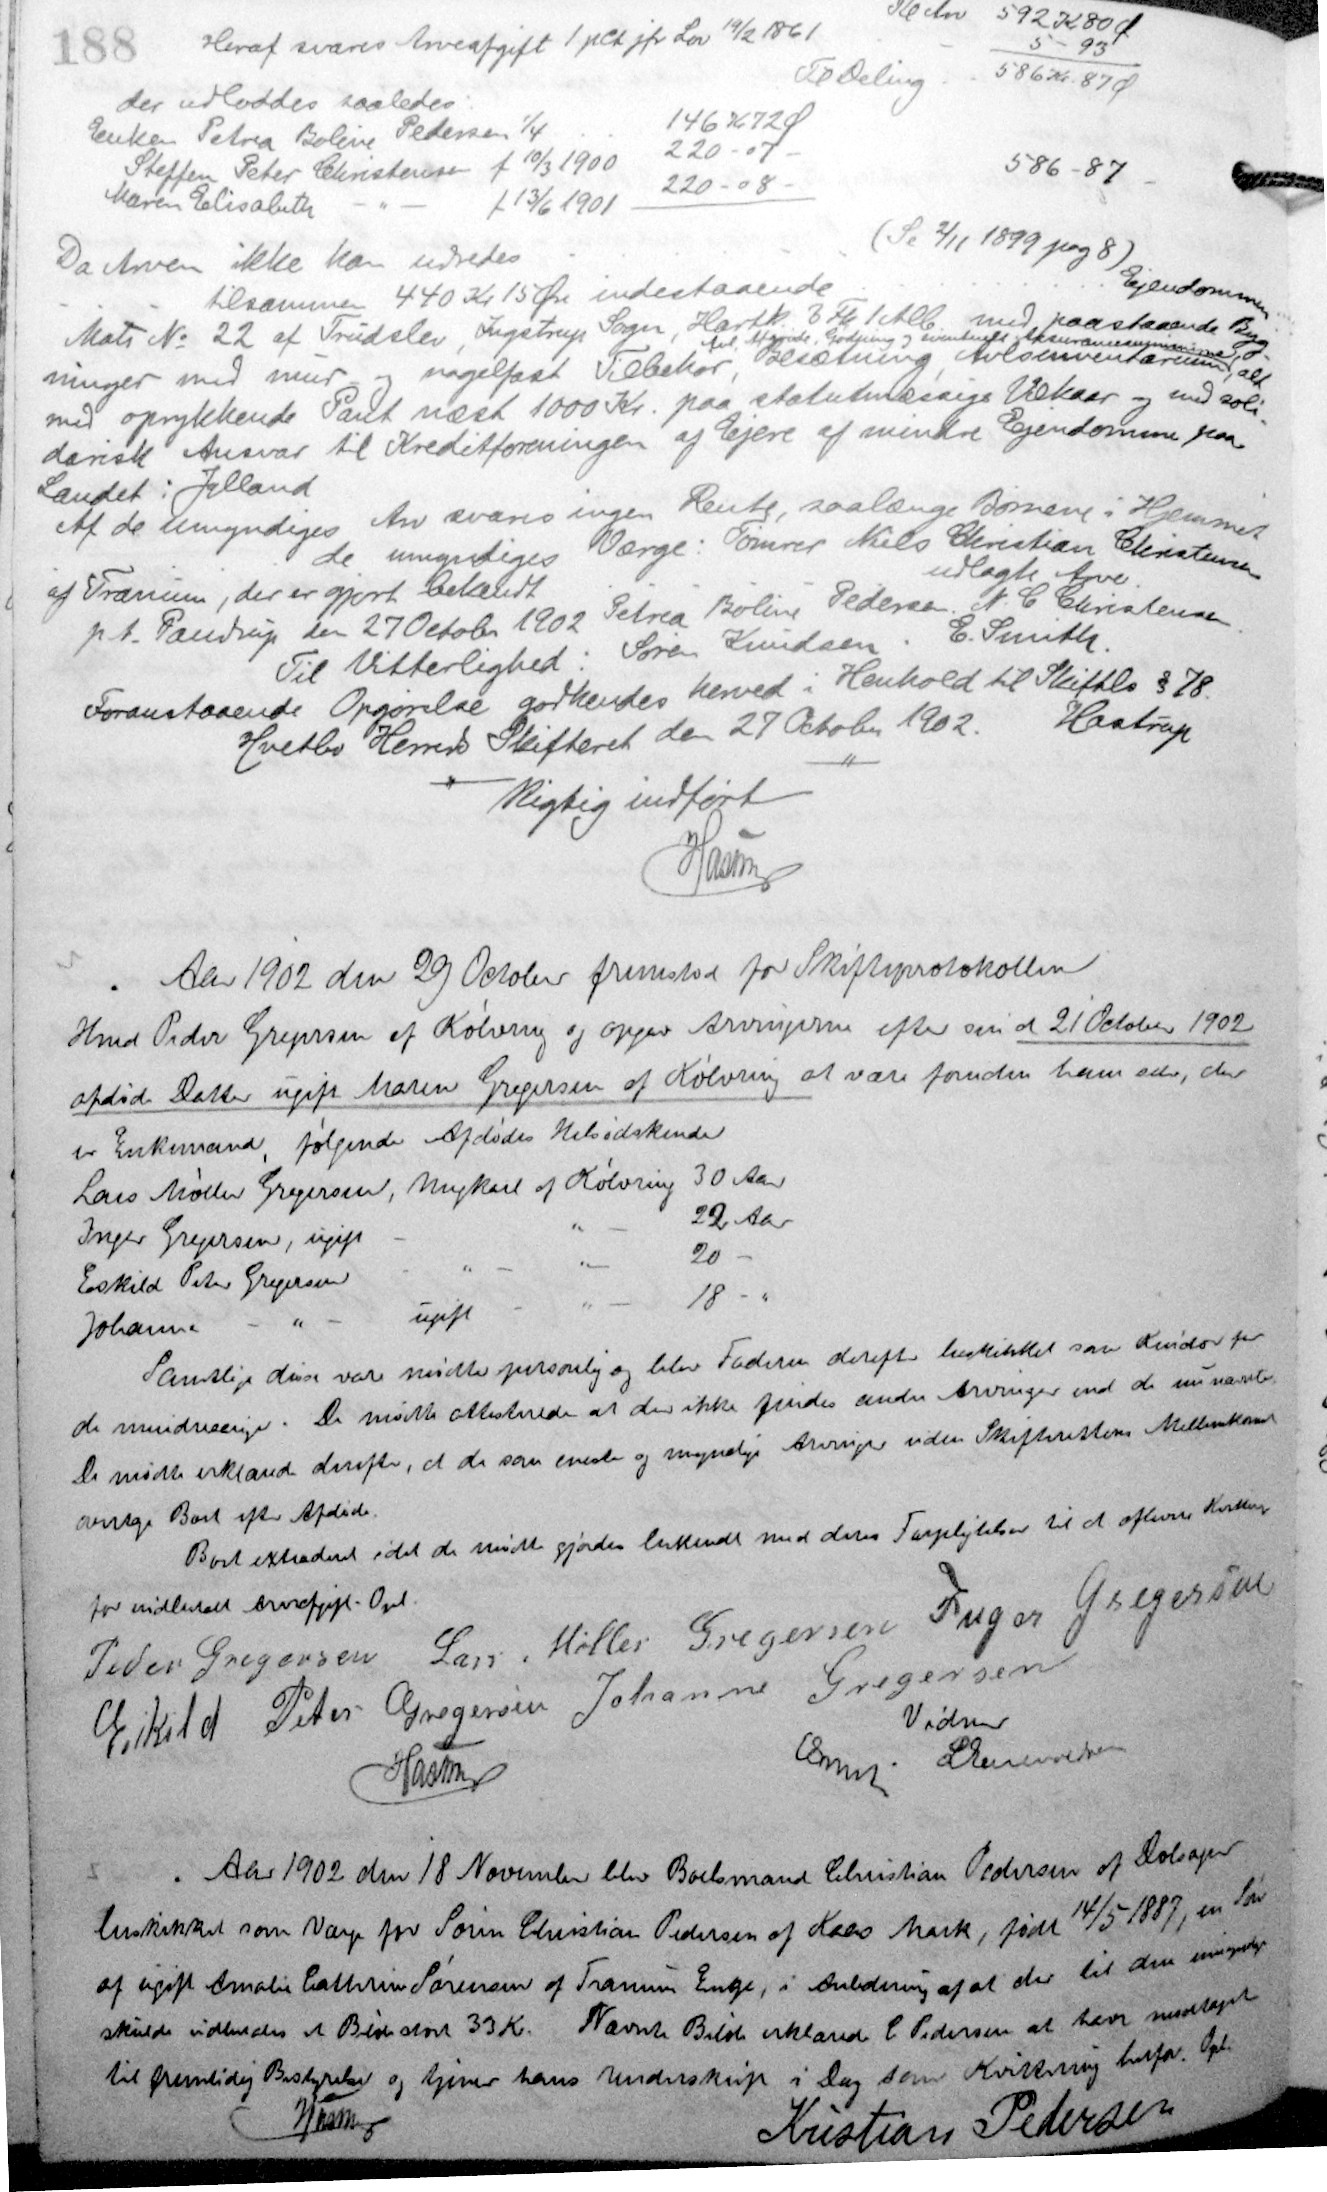 188
Til Arv 592 K 80 Ø
Heraf svares Arveafgift 1 pCt jfr Lov 19/2 1861 5 - 93
Til Deling 586 Kr. 87 Ø
der udloddes saaledes:
Enken Petrea Boline Pedersen 1/4 146 Kr 72 Ø
Steffen Peter Christensen f 10/3 1900 220 - 07 -
Maren Elisabeth - " - f 13/6 1901 220 - 08 - 586 - 87 -
(Se 2/11 1899 pag 8)
Da Arven ikke kan udredes
tilsammen 440 Kr 15 Øre indestaaende Ejendommen
Matr No 22 af Trudslev, Ingstrup Sogn, Hartk. 3 Fk 1 Alb. med paastaaende Byg-
Avl, Afgrøde, Gødning og eventuelle Assurancesummerne,
ninger med mur- og nagelfast Tilbehør, Besætning, Avlsinventarium, alt
med oprykkende Pant næst 1000 Kr. paa statutmæssige Vilkaar og med soli-
darisk Ansvar til Kreditforeningen af Ejere af mindre Ejendomme paa
Landet i Jylland
Af de umyndiges Arv svares ingen Rente, saalænge Børnene i Hjemmet
de umyndiges Værge: Tømrer Niels Christian Christensen
af Tranum, der er gjort bekendt udlagte Arve.
p.t. Pandrup den 27 October 1902 Petrea Boline Pedersen. N. C Christensen
Til Vitterlighed: Søren Knudsen. E. Smith.
Foranstaaende Opgørelse godkendes herved i Henhold til Skiftelo § 78.
Hvetbo Herreds Skifteret den 27 October 1902. Hastrup
"
Rigtig indført
Hastrup
Aar 1902 den 29 October fremstod for Skifteprotokollen
Hmd Peder Gregersen af Kølvring og opgav Arvingerne efter sin d 21 October 1902
afdøde Datter ugift Maren Gregersen af Kølvring at være foruden ham selv, der
er Enkemand, følgende Afdødes Helsødskende
Lars Møller Gregersen, Ungkarl af Kølvring 30 Aar
Inger Gregersen, ugift - " - 22 Aar
Eskild Peter Gregersen - " - " - 20 -
Johanne - " - ugift - " - 18 - "
Samtlige disse vare mødte personlig og blev Faderen derefter beskikket som Kurator for
de mindreaarige. De mødte attesterede at der ikke findes andre Arvinger end de nu nævnte.
De mødte erklærede derefter, at de som eneste og myndige Arvinger uden Skifterettens Mellemkomst
overtage Boet efter Afdøde.
Boet extraderet idet de mødte gjordes bekendt med deres Forpligtelser til at aflevere Kvittering
for indbetalt Arveafgift. Opl.
Peder Gregersen Lars Møller Gregersen Inger Gregersen
Eskild Peter Gregersen Johanne Gregersen
Vidner
Hastrup
Aar 1902 den 18 November blev Boelsmand Christian Pedersen af
beskikket som Værge for Søren Christian Pedersen af Kaas Mark, født 14/5 1887, en Søn
af ugift Amalie Cathrine Sørensen af Tranum Enge, i Anledning af at der til den umyndige
skulde udbetales et Beløb stort 33 K. Nævnte Beløb erklærede C Pedersen at have modtaget
til fremtidig Bestyrelse og tjener hans Underskrift i Dag som Kvittering herfor. Opl.
Hastrup
Kristian Pedersen